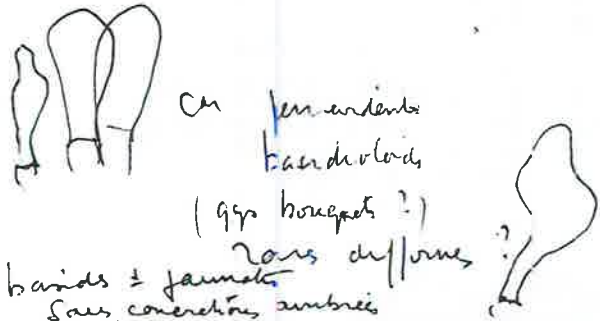 CM peu evidents
basidioloids
(qqs bouquets ?)
rares difformes ?
basids ± jaunatr
sans concretions ambrées